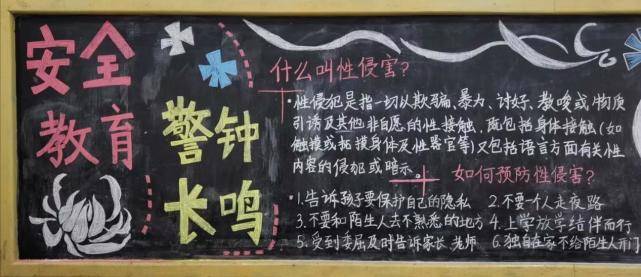 安全
教育
警钟
长鸣
什么叫性侵害?
·性侵犯是指一切以欺骗、暴力、讨好、教唆或物质
引诱及其他非自愿的性接触,既包括身体接触(如
触摸或抚摸身体及性器官等)又包括语言方面有关性
内容的侵犯或暗示。
如何预防性侵害?
1.告诉孩子要保护自己的隐私 2.不要一个人走夜路
3.不要和陌生人去不熟悉的地方 4.上学放学结伴而行
5.受到委屈及时告诉家长、老师 6.独自在家不给陌生人开门